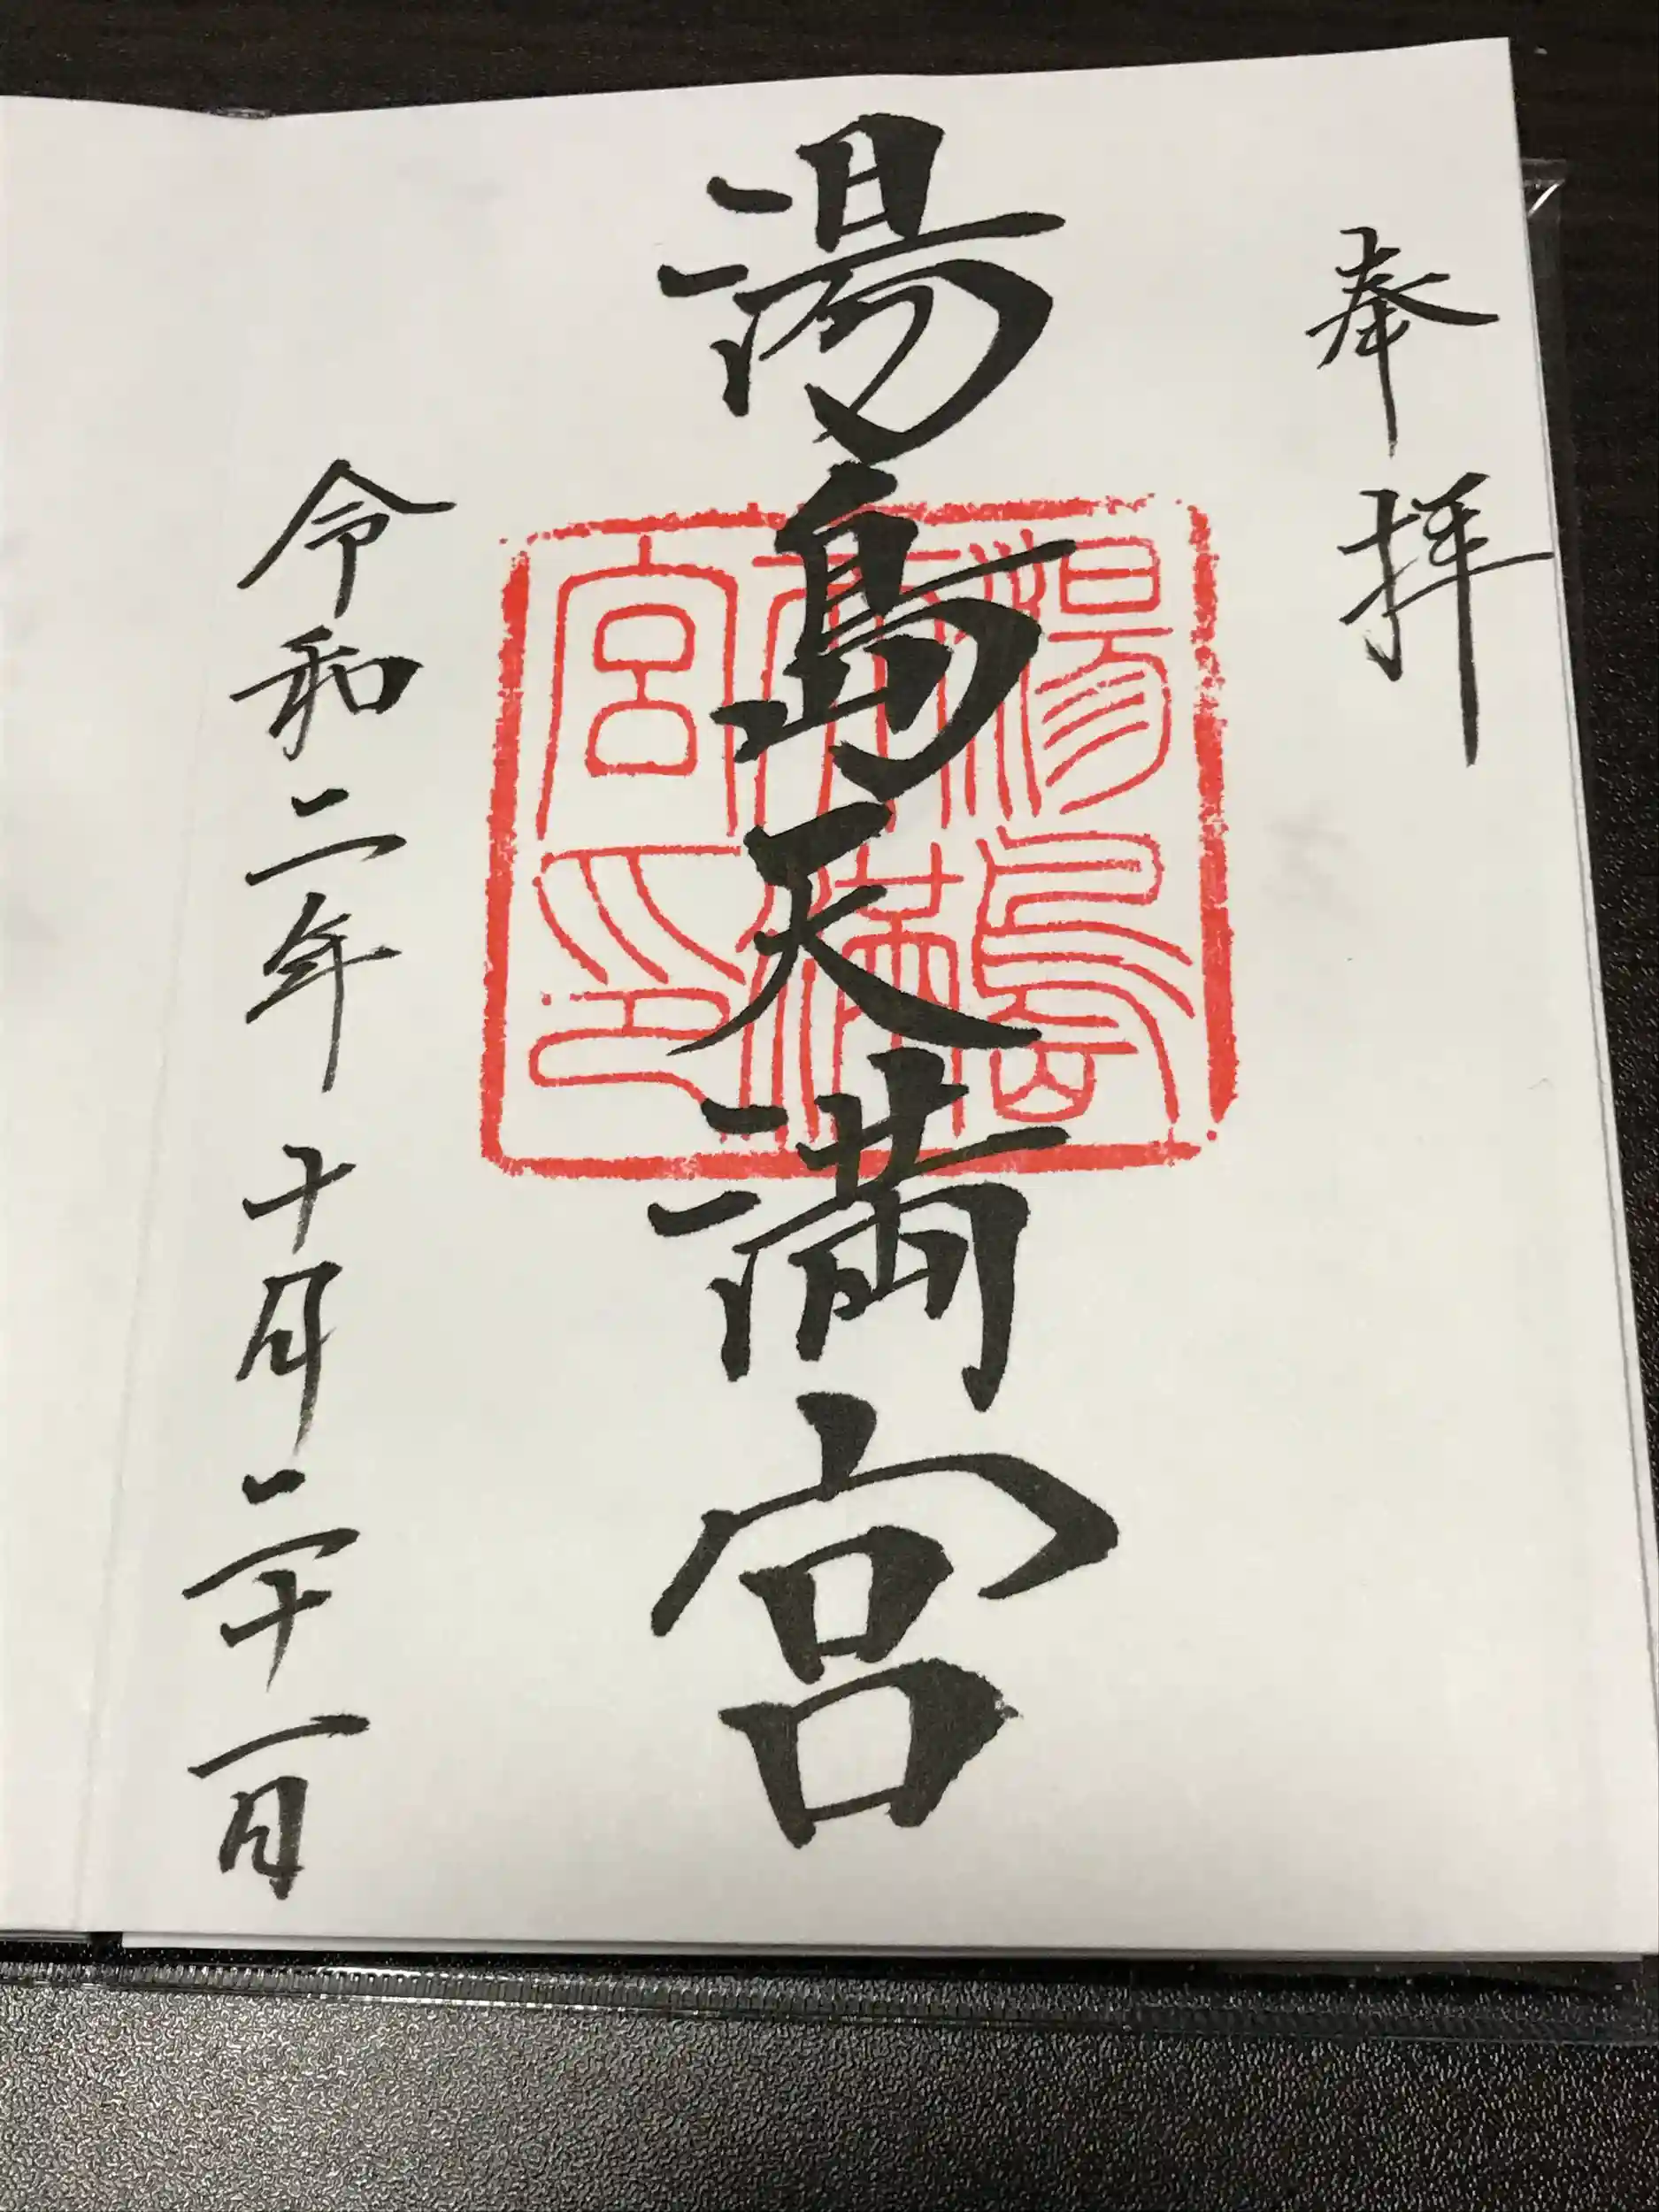 奉拝
湯島天満宮
湯島天満宮印
令和二年十月二十一日